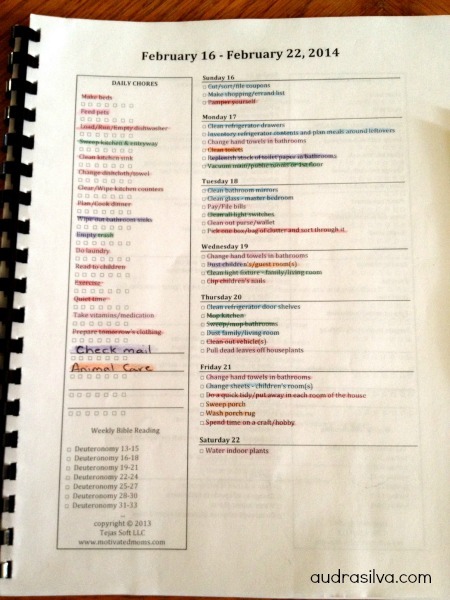 February 16 - February 22, 2014
DAILY CHORES
Make beds
Feed pets
Load/Run/Empty dishwasher
Sweep kitchen & entryway
Clean kitchen sink
Change dishcloth/towel
Clear/Wipe kitchen counters
Plan/Cook dinner
Wipe out bathroom sinks
Empty trash
Do laundry
Read to children
Exercise
Quiet time
Take vitamins/medication
Prepare tomorrow's clothing
Check mail
Animal Care
Weekly Bible Reading
Deuteronomy 13-15
Deuteronomy 16-18
Deuteronomy 19-21
Deuteronomy 22-24
Deuteronomy 25-27
Deuteronomy 28-30
Deuteronomy 31-33
copyright © 2013
Tejas Soft LLC
www.motivatedmoms.com
Sunday 16
Cut/sort/file coupons
Make shopping/errand list
Pamper yourself
Monday 17
Clean refrigerator drawers
Inventory refrigerator contents and plan meals around leftovers
Change hand towels in bathrooms
Clean toilets
Replenish stock of toilet paper in bathrooms
Vacuum main/public rooms or 1st floor
Tuesday 18
Clean bathroom mirrors
Clean glass - master bedroom
Pay/File bills
Clean all light switches
Clean out purse/wallet
Pick one box/bag of clutter and sort through it
Wednesday 19
Change hand towels in bathrooms
Dust children's/guest room(s)
Clean light fixture - family/living room
Clip children's nails
Thursday 20
Clean refrigerator door shelves
Mop kitchen
Sweep/mop bathrooms
Dust family/living room
Clean out vehicle(s)
Pull dead leaves off houseplants
Friday 21
Change hand towels in bathrooms
Change sheets - children's room(s)
Do a quick tidy/put away in each room of the house
Sweep porch
Wash porch rug
Spend time on a craft/hobby
Saturday 22
Water indoor plants
audrasilva.com